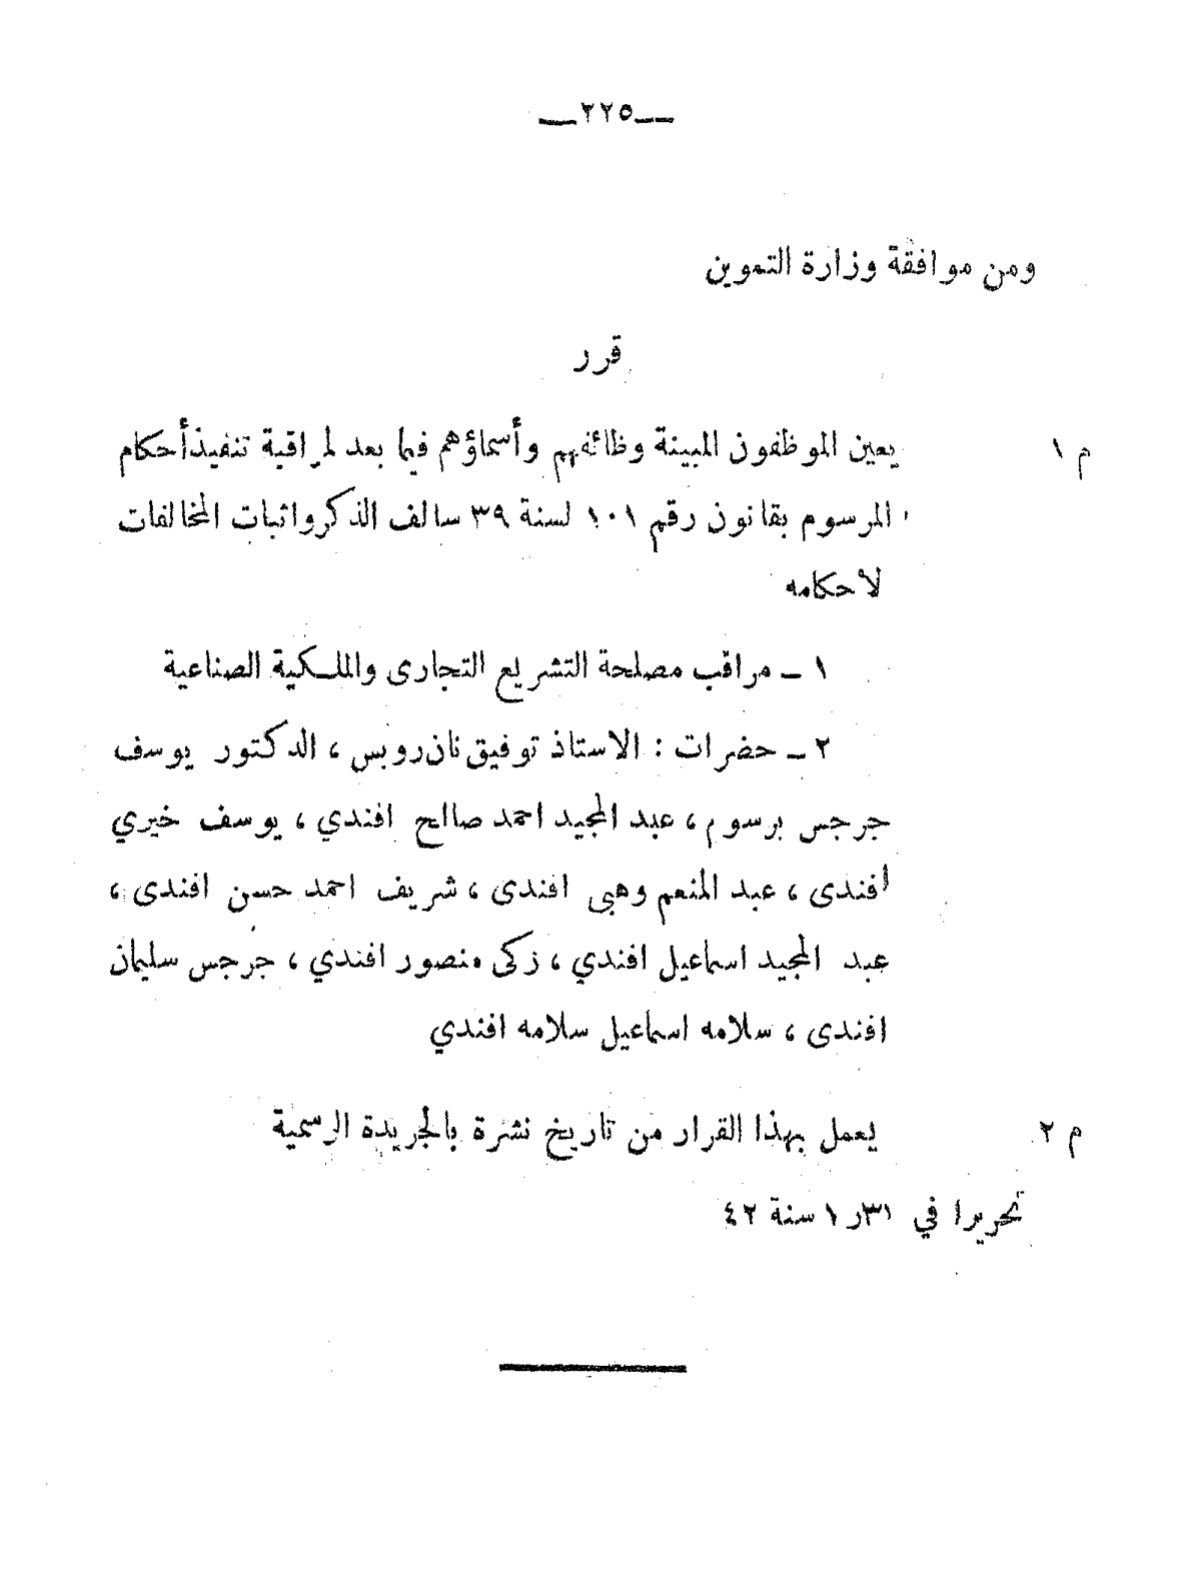 —٢٢٥—
ومن موافقة وزارة التموين
قرر
م ١ يعين الموظفون المبينة وظائفهم وأسماؤهم فيما بعد لمراقبة تنفيذ أحكام
المرسوم بقانون رقم ١٠١ لسنة ٣٩ سالف الذكر واثبات المخالفات
لأحكامه
١ – مراقب مصلحة التشريع التجارى والملكية الصناعية
٢ – حضرات : الاستاذ توفيق نان روبس ، الدكتور يوسف
جرجس برسوم ، عبد المجيد احمد صالح افندي ، يوسف خيري
أفندى ، عبد المنعم وهبى افندى ، شريف احمد حسن افندى ،
عبد المجيد اسماعيل افندي ، زكى منصور افندي ، جرجس سليمان
افندى ، سلامه اسماعيل سلامه افندي
م ٢ يعمل بهذا القرار من تاريخ نشرة بالجريدة الرسمية
تحريرا في ٣١ر١ سنة ٤٢